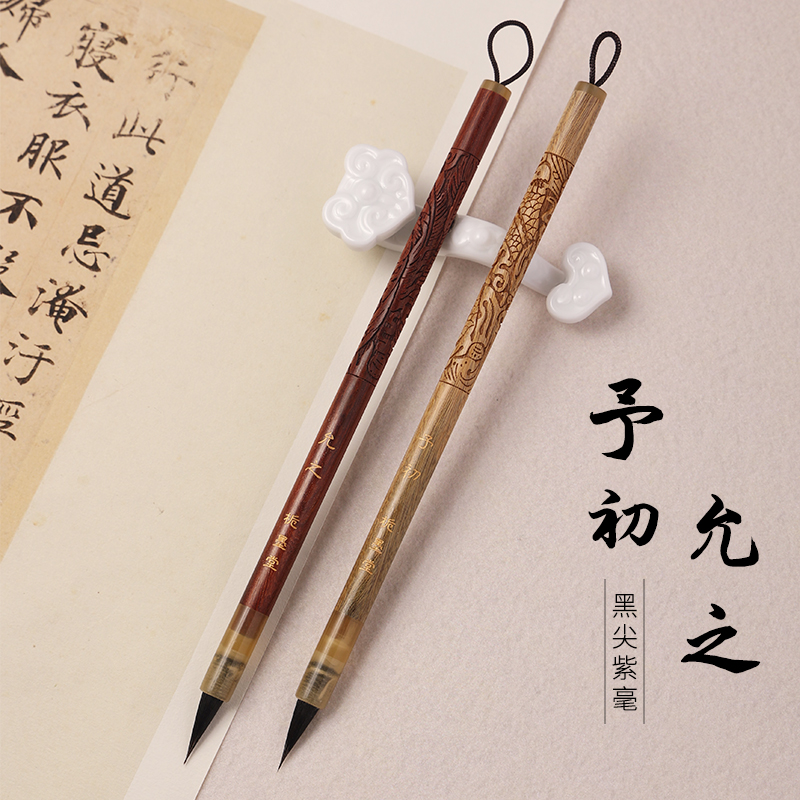 行此道忌淹汙
寢衣服不
允之 栀墨堂
予初 栀墨堂
予初
允之
黑尖紫毫